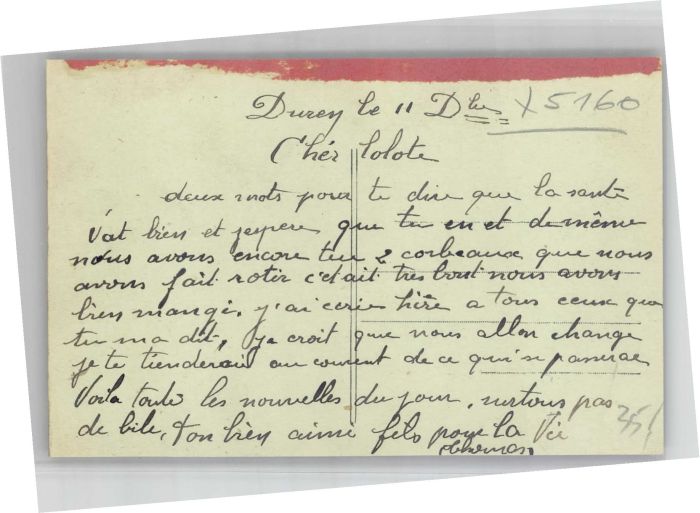 Durey le 11 Dbre X 5160
Chér lolote
deux mots pour te dire que la santé
vat bien et jespere que tu en et de même
nous avons encore tue 2 corbeaux que nous
avons fait rotir c'était tres bont nous avons
bien mangé. j'ai hire a tous ceux que
tu ma dit, je croit que nous allon change
je te tienderai au courent de ce qui se passerae
Voila toute les nouvelles du jour, surtous pas
de bile, ton bien aimé fils pour la vie
35!